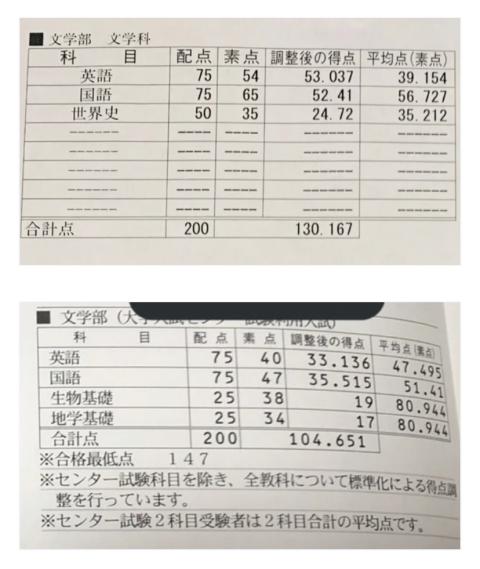 ■ 文学部 文学科
科 目 配点 素点 調整後の得点 平均点(素点)
英語 75 54 53.037 39.154
国語 75 65 52.41 56.727
世界史 50 35 24.72 35.212
------ ---- ---- ------ ------
------ ---- ---- ------ ------
------ ---- ---- ------ ------
------ ---- ---- ------ ------
------ ---- ---- ------ ------
合計点 200 130.167
■ 文学部(大学入試センター試験利用入試)
科 目 配点 素点 調整後の得点 平均点(素点)
英語 75 40 33.136 47.495
国語 75 47 35.515 51.41
生物基礎 25 38 19 80.944
地学基礎 25 34 17 80.944
合計点 200 104.651
※合格最低点 147
※センター試験科目を除き、全教科について標準化による得点調
整を行っています。
※センター試験2科目受験者は2科目合計の平均点です。